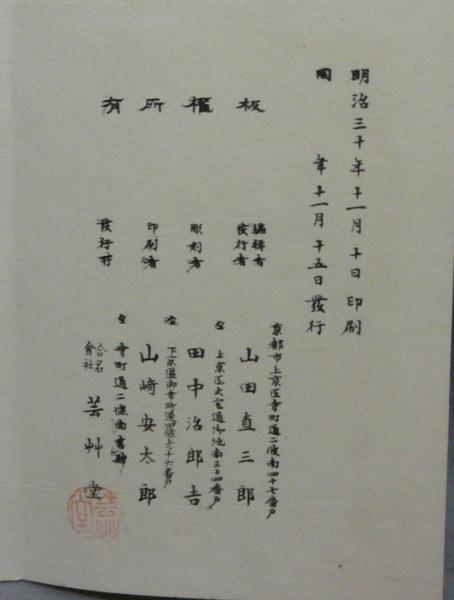 明治三十年十一月十日印刷
同年十一月十五日發行
板權所有
京都市上京區寺町通二條南四十七番戶
編輯者
發行者
山田直三郎
仝上京區大宮通御池南三十四番戶
彫刻者
田中治郎吉
仝下京區御幸町通四條九十六番戶
印刷者
山﨑安太郎
仝寺町通二條南
發行所
合名
會社
芸艸堂